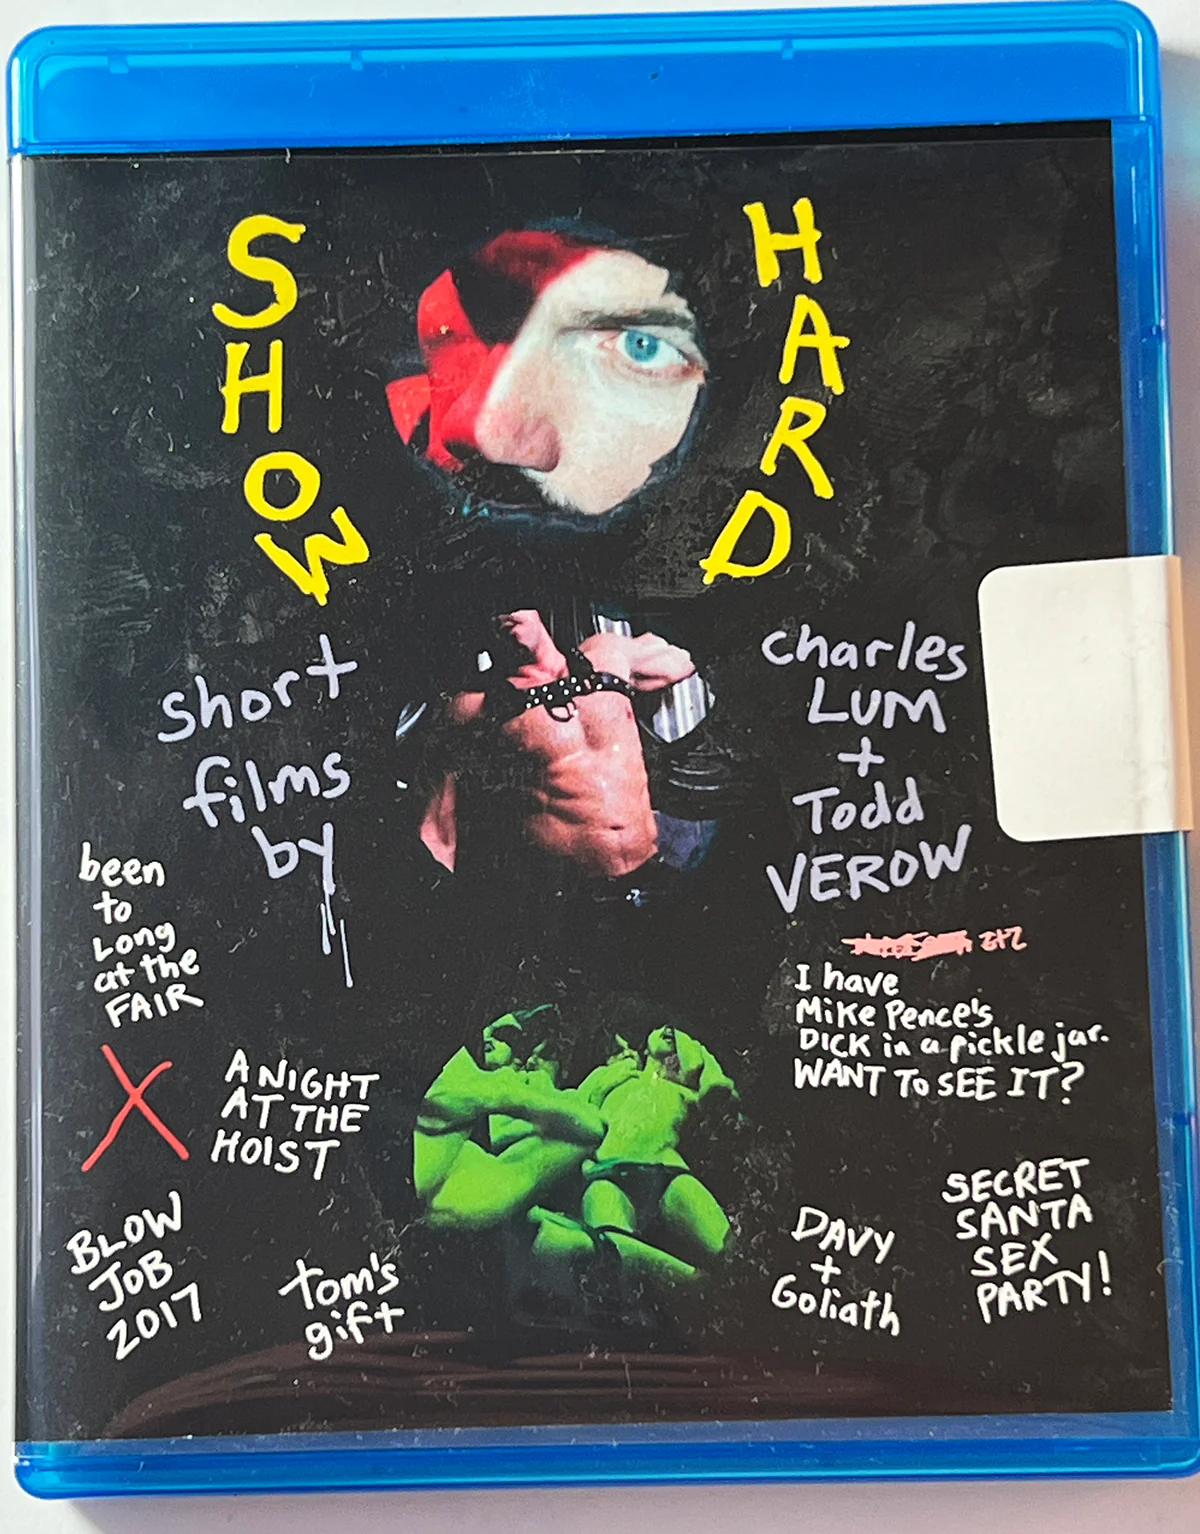 SHOW
HARD
short
films
by
charles
LUM
+
Todd
VEROW
been
to
Long
at the
FAIR
X
A NIGHT
AT THE
HOIST
BLOW
JOB
2017
tom's
gift
I have
Mike Pence's
DICK in a pickle jar.
WANT TO SEE IT?
DAVY
+
Goliath
SECRET
SANTA
SEX
PARTY!